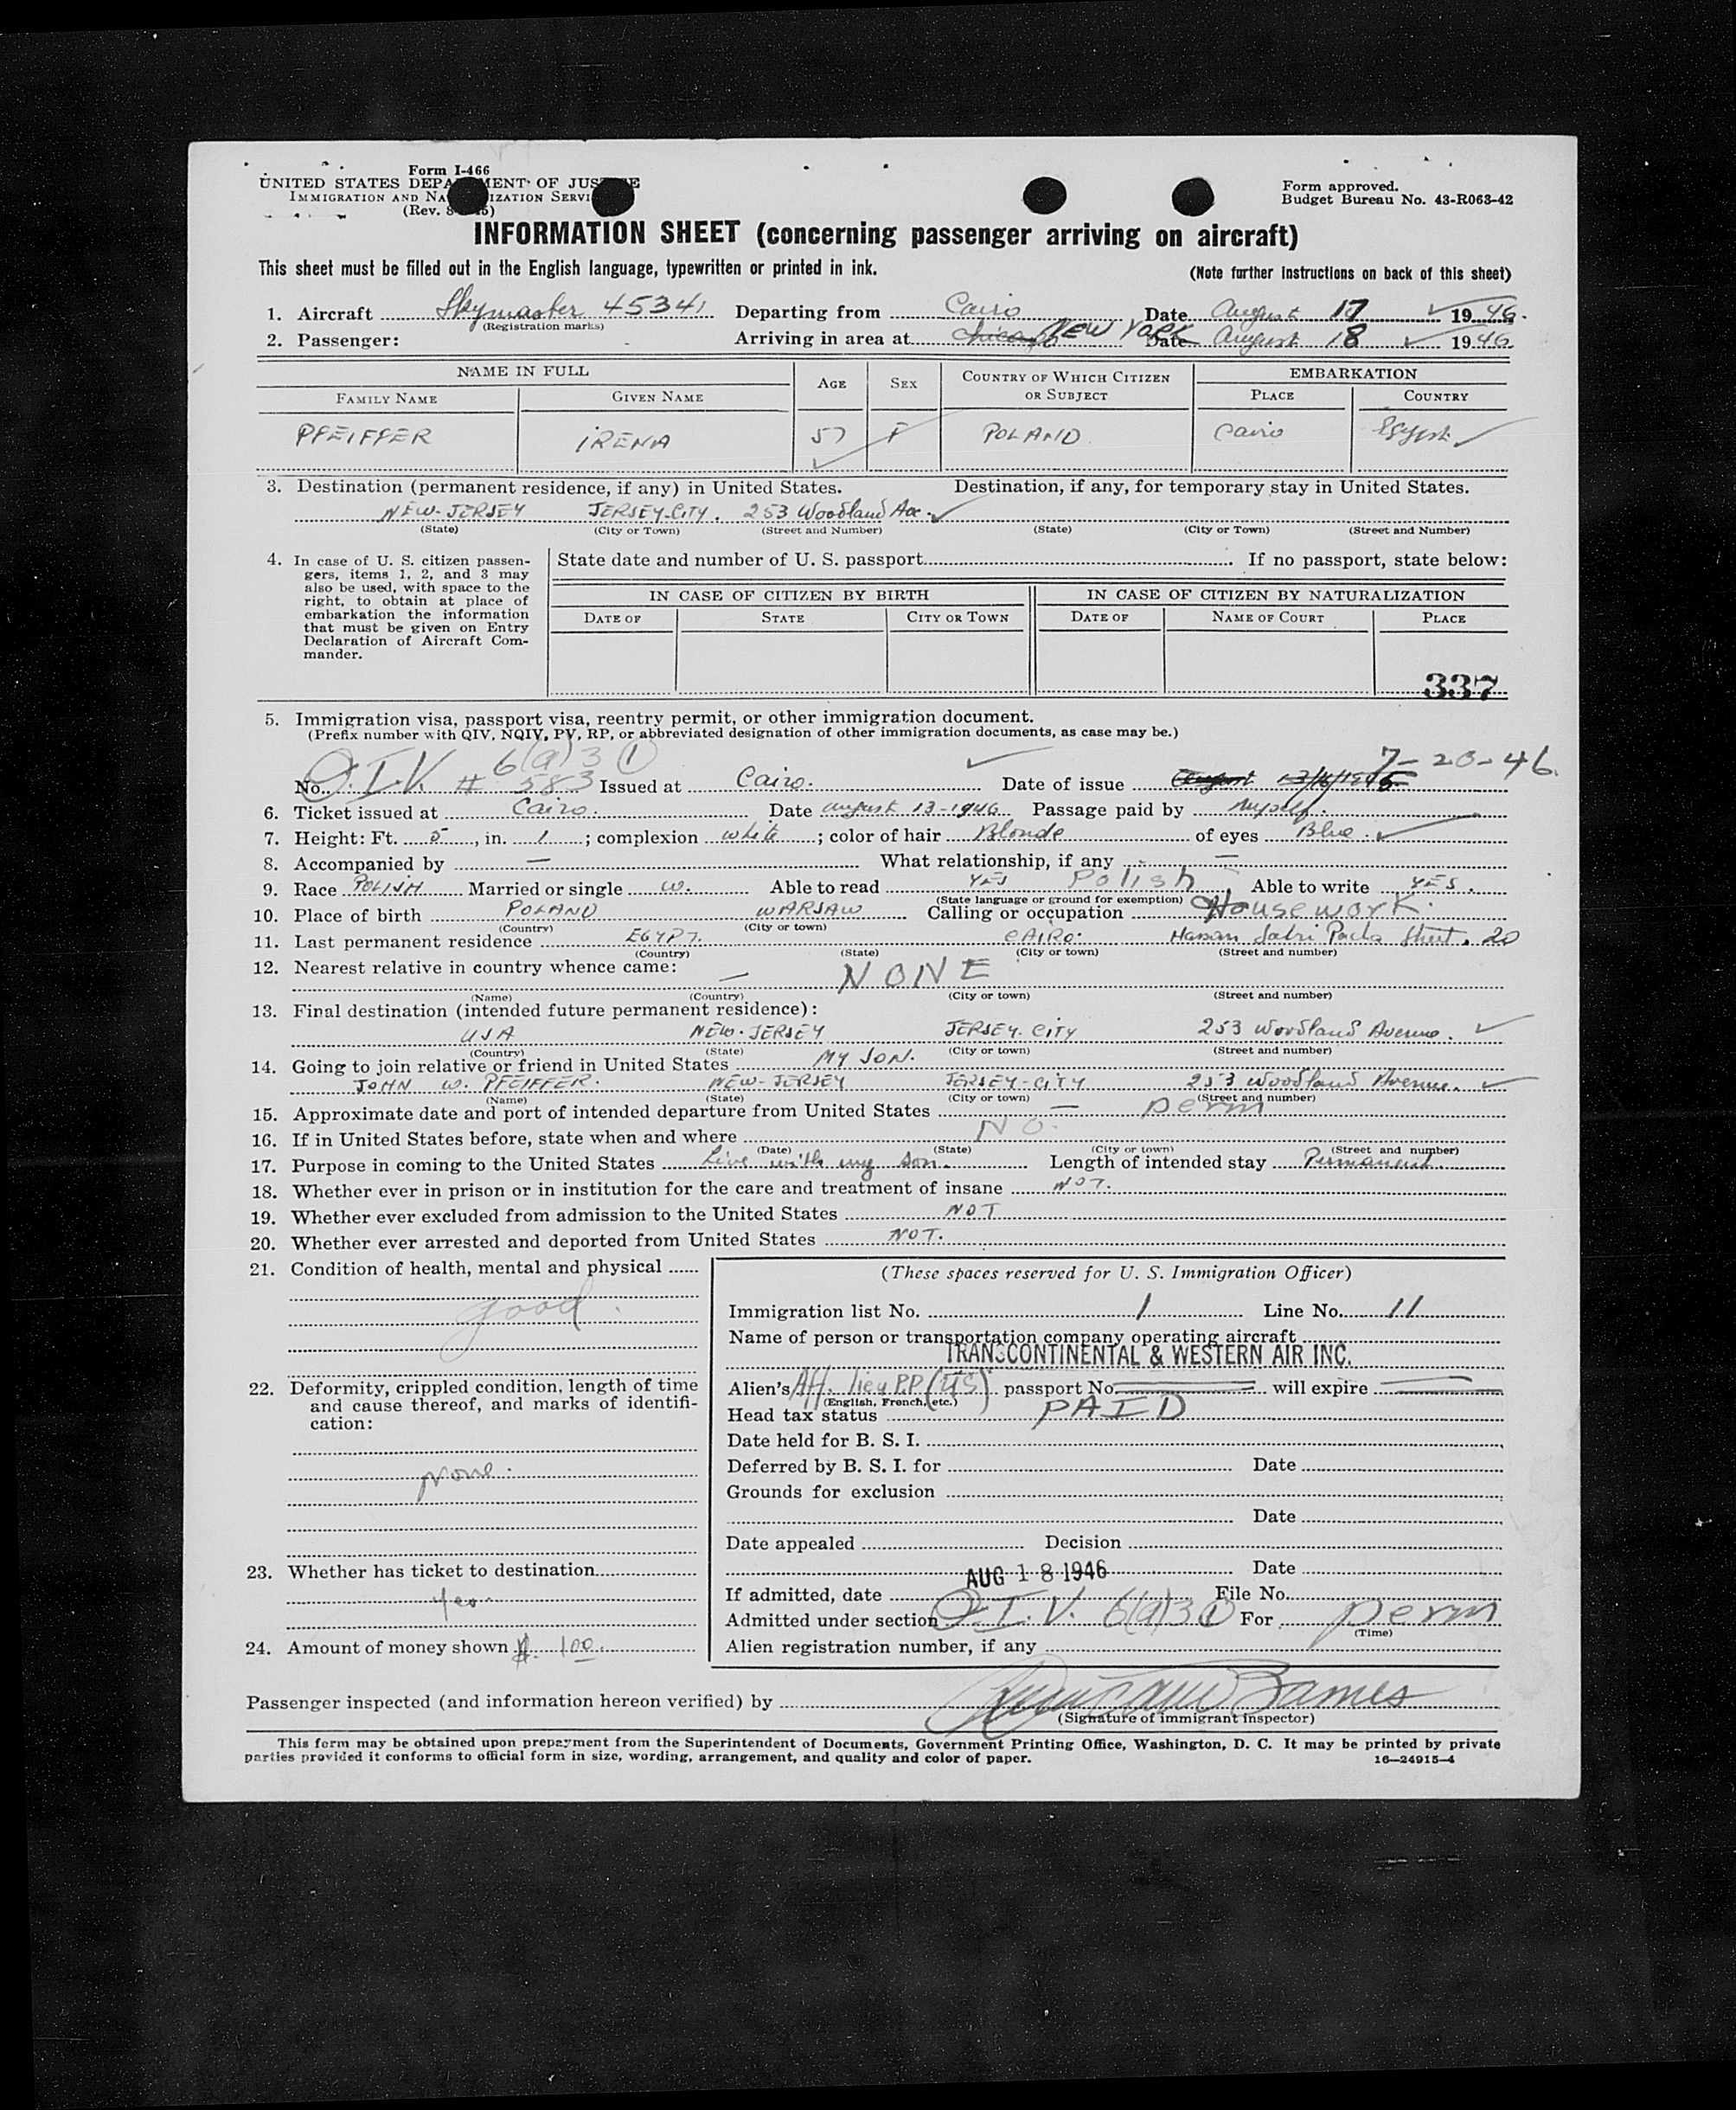 Form I-466
UNITED STATES DEPARTMENT OF JUSTICE
IMMIGRATION AND NATURALIZATION SERVICE
(Rev.
Form approved.
Budget Bureau No. 43-R063-42
INFORMATION SHEET (concerning passenger arriving on aircraft)
This sheet must be filled out in the English language, typewritten or printed in ink.
(Note further instructions on back of this sheet)
1. Aircraft Skymaster 45341 Departing from Cairo Date August 17 1946.
(Registration marks)
2. Passenger: Arriving in area at NEW YORK Date August 18 1946.
NAME IN FULL AGE SEX COUNTRY OF WHICH CITIZEN OR SUBJECT EMBARKATION
FAMILY NAME GIVEN NAME PLACE COUNTRY
PFEIFFER IRENA 57 F POLAND Cairo Egypt
3. Destination (permanent residence, if any) in United States. Destination, if any, for temporary stay in United States.
NEW-JERSEY JERSEY-CITY. 253 Woodland Ave.
(State) (City or Town) (Street and Number) (State) (City or Town) (Street and Number)
4. In case of U. S. citizen passengers, items 1, 2, and 3 may also be used, with space to the right, to obtain at place of embarkation the information that must be given on Entry Declaration of Aircraft Commander.
State date and number of U. S. passport If no passport, state below:
IN CASE OF CITIZEN BY BIRTH IN CASE OF CITIZEN BY NATURALIZATION
DATE OF STATE CITY OR TOWN DATE OF NAME OF COURT PLACE
337
5. Immigration visa, passport visa, reentry permit, or other immigration document.
(Prefix number with QIV, NQIV, PV, RP, or abbreviated designation of other immigration documents, as case may be.)
6(a)3 (1) 7-20-46.
No. Q.I.V. # 583 Issued at Cairo. Date of issue
6. Ticket issued at Cairo. Date August 13-1946 Passage paid by Myself.
7. Height: Ft. 5, in. 1; complexion white; color of hair Blonde of eyes Blue.
8. Accompanied by — What relationship, if any —
9. Race POLISH Married or single W. Able to read YES Polish, Able to write YES.
(State language or ground for exemption)
10. Place of birth POLAND WARSAW Calling or occupation Housework.
(Country) (City or town)
11. Last permanent residence EGYPT. CAIRO. Hasan Sabri Pacha Street. 20
(Country) (State) (City or town) (Street and number)
12. Nearest relative in country whence came: — NONE
(Name) (Country) (City or town) (Street and number)
13. Final destination (intended future permanent residence):
USA NEW-JERSEY JERSEY-CITY 253 Woodland Avenue.
(Country) (State) (City or town) (Street and number)
14. Going to join relative or friend in United States MY SON.
JOHN W. PFEIFFER. NEW-JERSEY JERSEY-CITY 253 Woodland Avenue.
(Name) (State) (City or town) (Street and number)
15. Approximate date and port of intended departure from United States — perm
16. If in United States before, state when and where NO.
(Date) (State) (City or town) (Street and number)
17. Purpose in coming to the United States Live with my son. Length of intended stay Permanent.
18. Whether ever in prison or in institution for the care and treatment of insane NOT.
19. Whether ever excluded from admission to the United States NOT
20. Whether ever arrested and deported from United States NOT.
21. Condition of health, mental and physical
good.
22. Deformity, crippled condition, length of time and cause thereof, and marks of identification:
none.
23. Whether has ticket to destination
Yes
24. Amount of money shown $. 100.
(These spaces reserved for U. S. Immigration Officer)
Immigration list No. 1 Line No. 11
Name of person or transportation company operating aircraft
TRANSCONTINENTAL & WESTERN AIR INC.
Alien's Aff. lieu P.P. (US) passport No. will expire
(English, French, etc.)
Head tax status PAID
Date held for B. S. I.
Deferred by B. S. I. for Date
Grounds for exclusion
Date
Date appealed Decision
Date
If admitted, date AUG 18 1946 File No.
Admitted under section Q.I.V. 6(a)3(1) For perm
(Time)
Alien registration number, if any
Passenger inspected (and information hereon verified) by Barnes
(Signature of immigrant inspector)
This form may be obtained upon prepayment from the Superintendent of Documents, Government Printing Office, Washington, D. C. It may be printed by private
parties provided it conforms to official form in size, wording, arrangement, and quality and color of paper.
16—24915-4